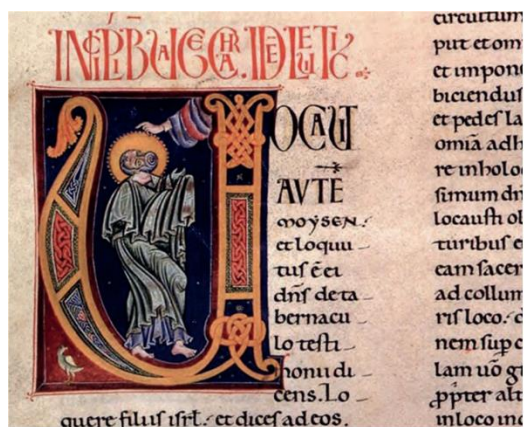 UOCAUT
AUTĒ
MOYSEN.
et loquu
tus ē ei
dn̄s de ta
bernacu
lo testi
monii di
cens. Lo
quere filiis isrl̄. et dices ad eos.
circuitum
put et om
et impon
biciendus
et pedes la
omīa adh
re in holo
simum dn̄
locausti ol
turibus e
eam sacer
ad collum
ris loco. d
nem sup c
lam uō g
ppter alt
in loco in